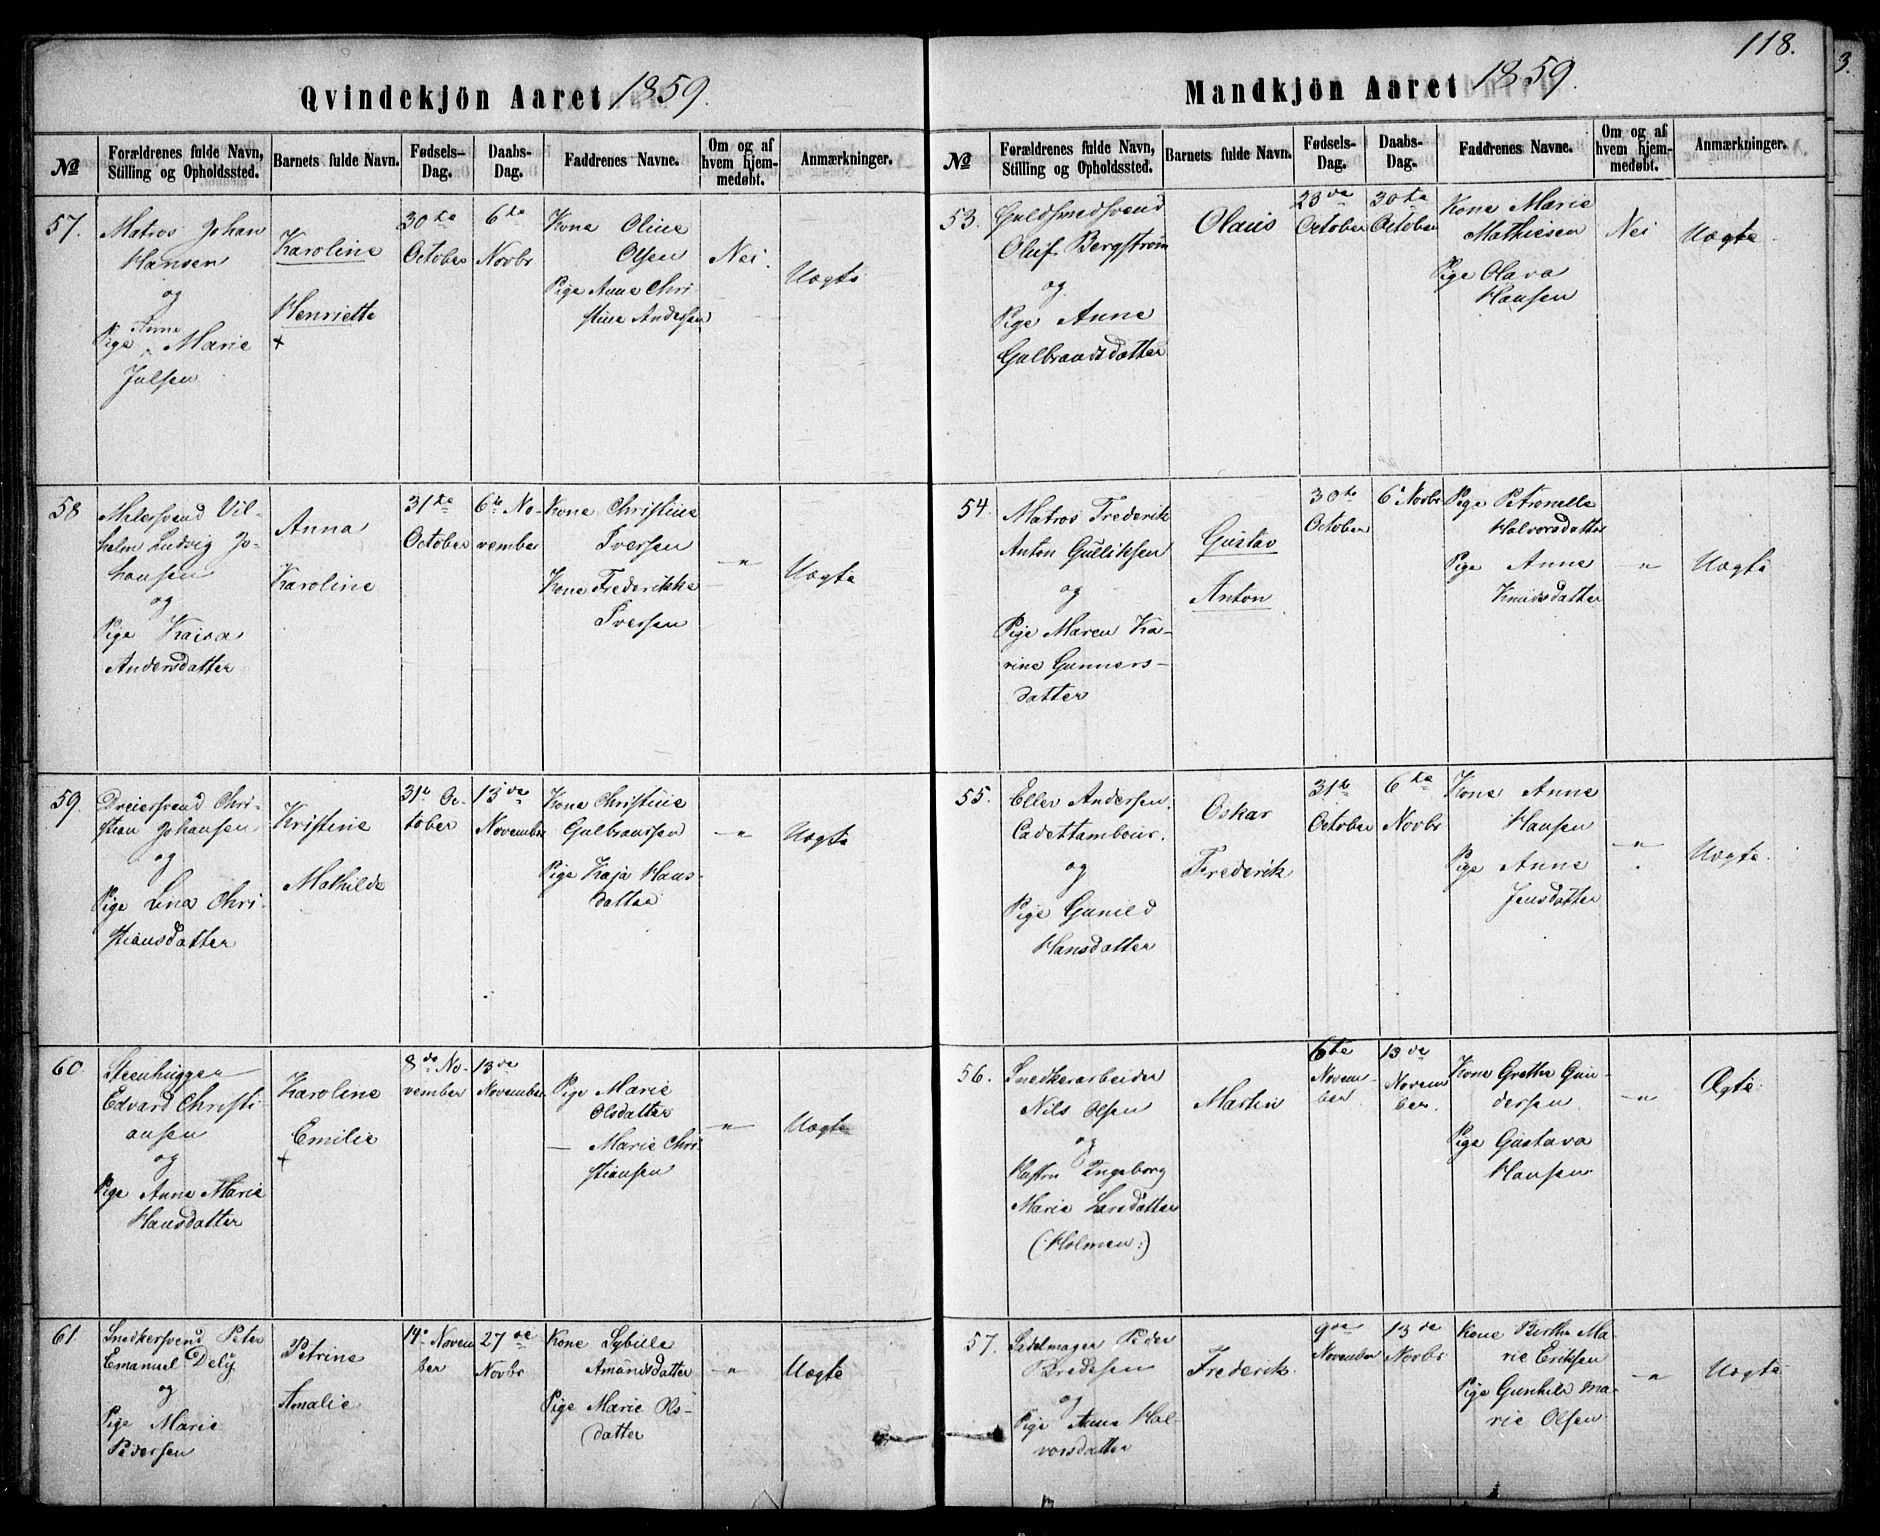 118.
3.
Qvindekjön Aaret 1859.
№
Forældrenes fulde Navn, Stilling og Opholdssted.
Barnets fulde Navn.
Fødsels-Dag.
Daabs-Dag.
Faddrenes Navne.
Om og af hvem hjem-medøbt.
Anmærkninger.
57.
Matros Johan
Hansen
og
Anne
Pige " Marie
Julsen
Karoline
Henriette
+
30te
October
6te
Novbr
Kone Oline
Olsen
Pige Anne Chri
stine Andersen
Nei.
Uægte
58
Malersvend Vil-
helm Ludvig Jo-
hansen
og
Pige Kaisa
Andersdatter
Anna
Karoline
31te
October
6te No-
vember
Kone Christine
Iversen
Kone Frederikke
Iversen
"
Uægte
59.
Dreiersvend Chri-
stian Johansen
og
Pige Lina Chri-
stiansdatter
Kristine
Mathilde
31te Oc-
tober
13de
November
Kone Christine
Gulbranssen
Pige Kaja Hans-
datter
"
Uægte
60
Steenhugger
Edvard Christi
ansen
og
Pige Anne Marie
Hansdatter
Karoline
Emilie
+
8de No-
vember
13de
November
Pige Marie
Olsdatter
— Marie Chri
stiansen
"
Uægte
61
Snedkersvend Peter
Emanuel Dely
og
Pige Marie
Pedersen
Petrine
Amalie
14de Novem
ber
27de
Novbr
Kone Sybille
Amundsdatter
Pige Marie Ols-
datter
"
Uægte
Mandkjön Aaret 1859.
№
Forældrenes fulde Navn, Stilling og Opholdssted.
Barnets fulde Navn.
Fødsels-Dag.
Daabs-Dag.
Faddrenes Navne.
Om og af hvem hjem-medøbt.
Anmærkninger.
53.
Guldsmedsvend
Oluf Bergstrøm
og
Pige Anne
Gulbrandsdatter
Olaus
23de
October
30te
October
Kone Marie
Mathiesen
Pige Olava
Hansen
Nei
Uægte
54.
Matros Frederik
Anton Gulliksen
og
Pige Maren Ka-
rine Gunners-
datter
Gustav
Anton
30te
October
6te Novbr
Pige Petronelle
Halvorsdatter
Pige Anne
Knudsdatter
"
Uægte
55.
Eller Andersen
Cadettambour.
og
Pige Gunild
Hansdatter
Oskar
Frederik
31te
October
6te
Novbr
Kone Anne
Hansen
Pige Anne
Jensdatter
"
Uægte.
56.
Snedkerarbeider
Nils Olsen
og
Hustru Ingeborg
Marie Larsdatter
(:Holmen:)
Martin
6te
Novem-
ber
13de
Novem
ber.
Kone Grethe Gun-
dersen
Pige Gustava
Hansen.
"
Ægte.
57.
Sadelmager Peder
Bredesen
og
Pige Anne Hal-
vorsdatter
Frederik
9de
November
13de
Novbr
Kone Berthe Ma-
rie Eriksen
Pige Gunhild Ma-
rie Olsen
"
Uægte